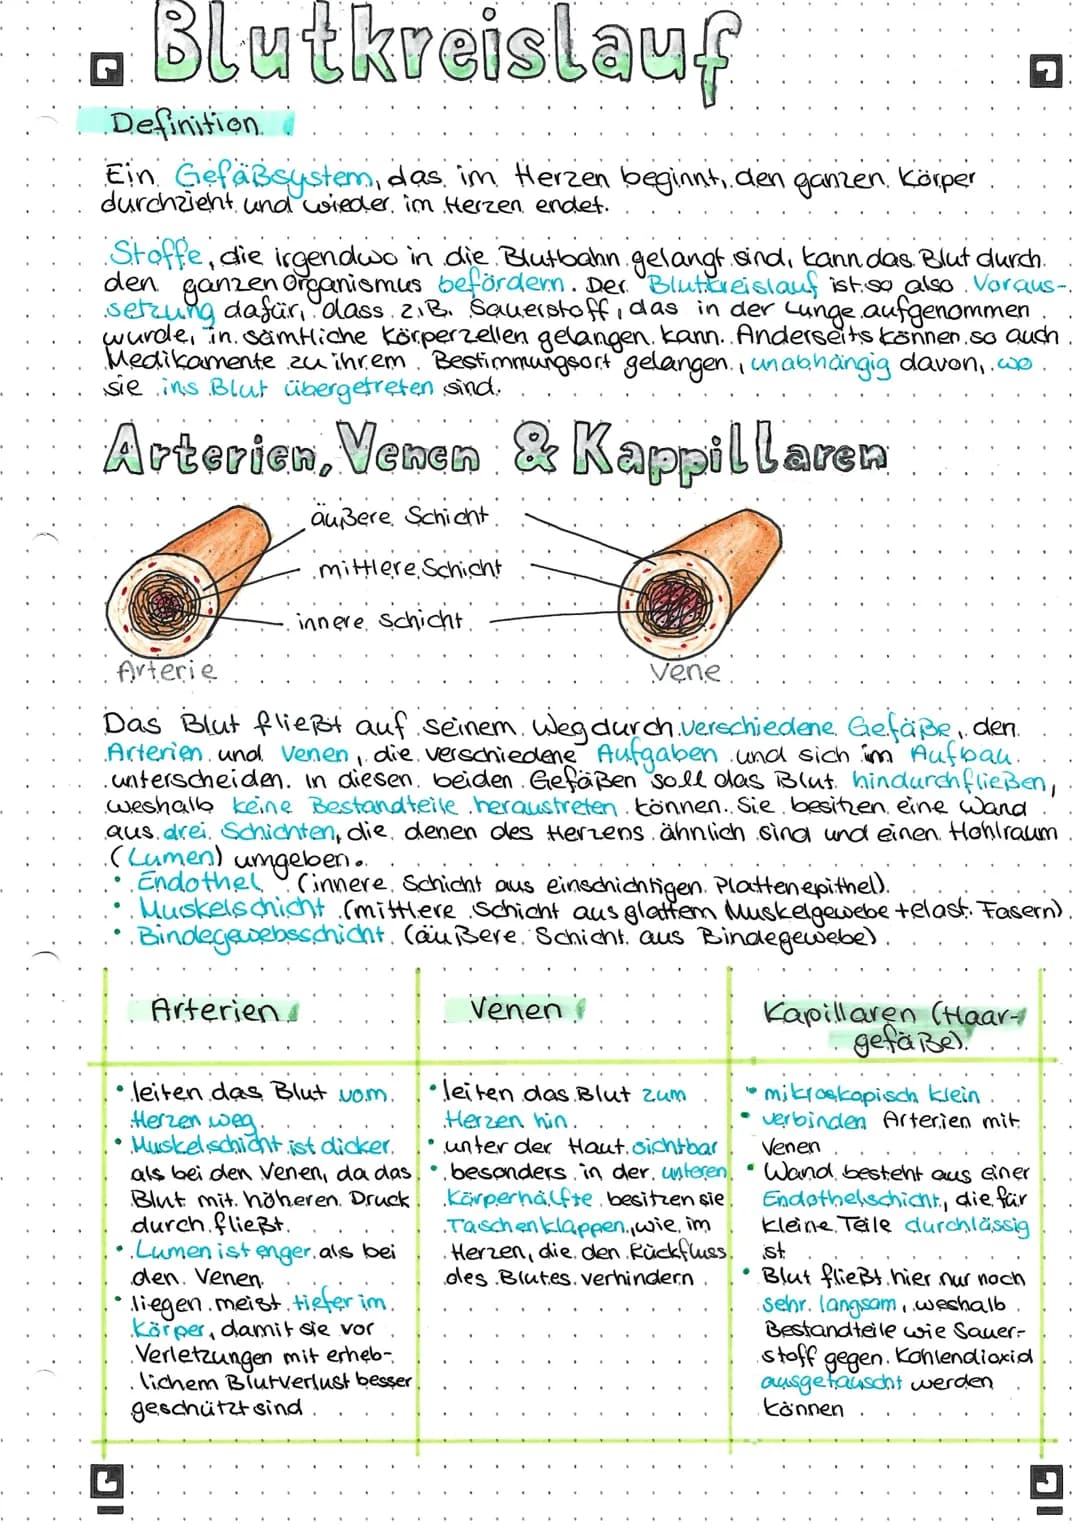 Blutkreislauf
Definition
Ein Gefäßsystem, das im Herzen beginnt, den ganzen Körper
durchzieht und wieder im Herzen endet.
Stoffe, die irgendwo in die Blutbahn gelangt sind, kann das Blut durch
den ganzen Organismus befördern. Der Blutkreislauf ist so also Voraus-
setzung dafür, dass z.B. Sauerstoff, das in der Lunge aufgenommen
wurde, in sämtliche Körperzellen gelangen kann. Anderseits können so auch
Medikamente zu ihrem Bestimmungsort gelangen, unabhängig davon, wo
sie ins Blut übergetreten sind.
Arterien, Venen & Kappillaren
äußere Schicht
mittlere Schicht
innere Schicht
Arterie
Vene
Das Blut fließt auf seinem Weg durch verschiedene Gefäße, den
Arterien und Venen, die verschiedene Aufgaben und sich im Aufbau
unterscheiden. In diesen beiden Gefäßen soll das Blut hindurchfließen,
weshalb keine Bestandteile heraustreten können. Sie besitzen eine Wand
aus drei Schichten, die denen des Herzens ähnlich sind und einen Hohlraum
(Lumen) umgeben.
• Endothel (innere Schicht aus einschichtigen Plattenepithel)
• Muskelschicht (mittlere Schicht aus glattem Muskelgewebe + elast. Fasern)
• Bindegewebsschicht (äußere Schicht aus Bindegewebe)
Arterien
• leiten das Blut vom
Herzen weg
• Muskelschicht ist dicker
als bei den Venen, da das
Blut mit höheren Druck
durch fließt
• Lumen ist enger als bei
den Venen
• liegen meist tiefer im
Körper, damit sie vor
Verletzungen mit erheb-
lichem Blutverlust besser
geschützt sind
Venen
• leiten das Blut zum
Herzen hin
• unter der Haut sichtbar
• besonders in der unteren
Körperhälfte besitzen sie
Taschenklappen, wie im
Herzen, die den Rückfluss
des Blutes verhindern
Kapillaren (Haar-
gefäße)
• mikroskopisch klein
• verbinden Arterien mit
Venen
• Wand besteht aus einer
Endothelschicht, die für
kleine Teile durchlässig
ist
• Blut fließt hier nur noch
sehr langsam, weshalb
Bestandteile wie Sauer-
stoff gegen Kohlendioxid
ausgetauscht werden
können